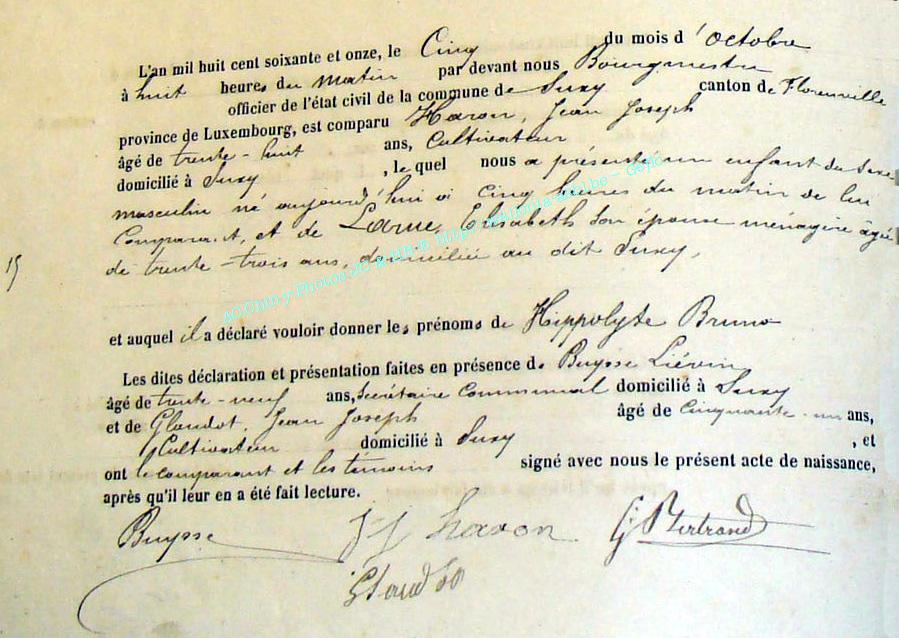 L'an mil huit cent soixante et onze, le Cinq du mois d'octobre
à huit heures du matin par devant nous Bourgmestre
officier de l'état civil de la commune de Suxy canton de Florenville
province de Luxembourg, est comparu Haron, Jean Joseph
âgé de trente-huit ans, Cultivateur
domicilié à Suxy, le quel nous a présenté un enfant du sexe
masculin né aujourd'hui à cinq heures du matin de lui
Comparant, et de Larue, Elisabeth son épouse ménagère âgée
de trente-trois ans, domiciliée au dit Suxy,
15
et auquel il a déclaré vouloir donner les prénoms de Hippolyte Bruno
Les dites déclaration et présentation faites en présence de Buysse Liévin
âgé de trente-neuf ans, Secrétaire Communal domicilié à Suxy
et de Glaudot, Jean Joseph âgé de Cinquante-un ans,
Cultivateur domicilié à Suxy, et
ont le comparant et les témoins signé avec nous le présent acte de naissance,
après qu'il leur en a été fait lecture.
Buysse J J Haron G Bertrand
Glaudot